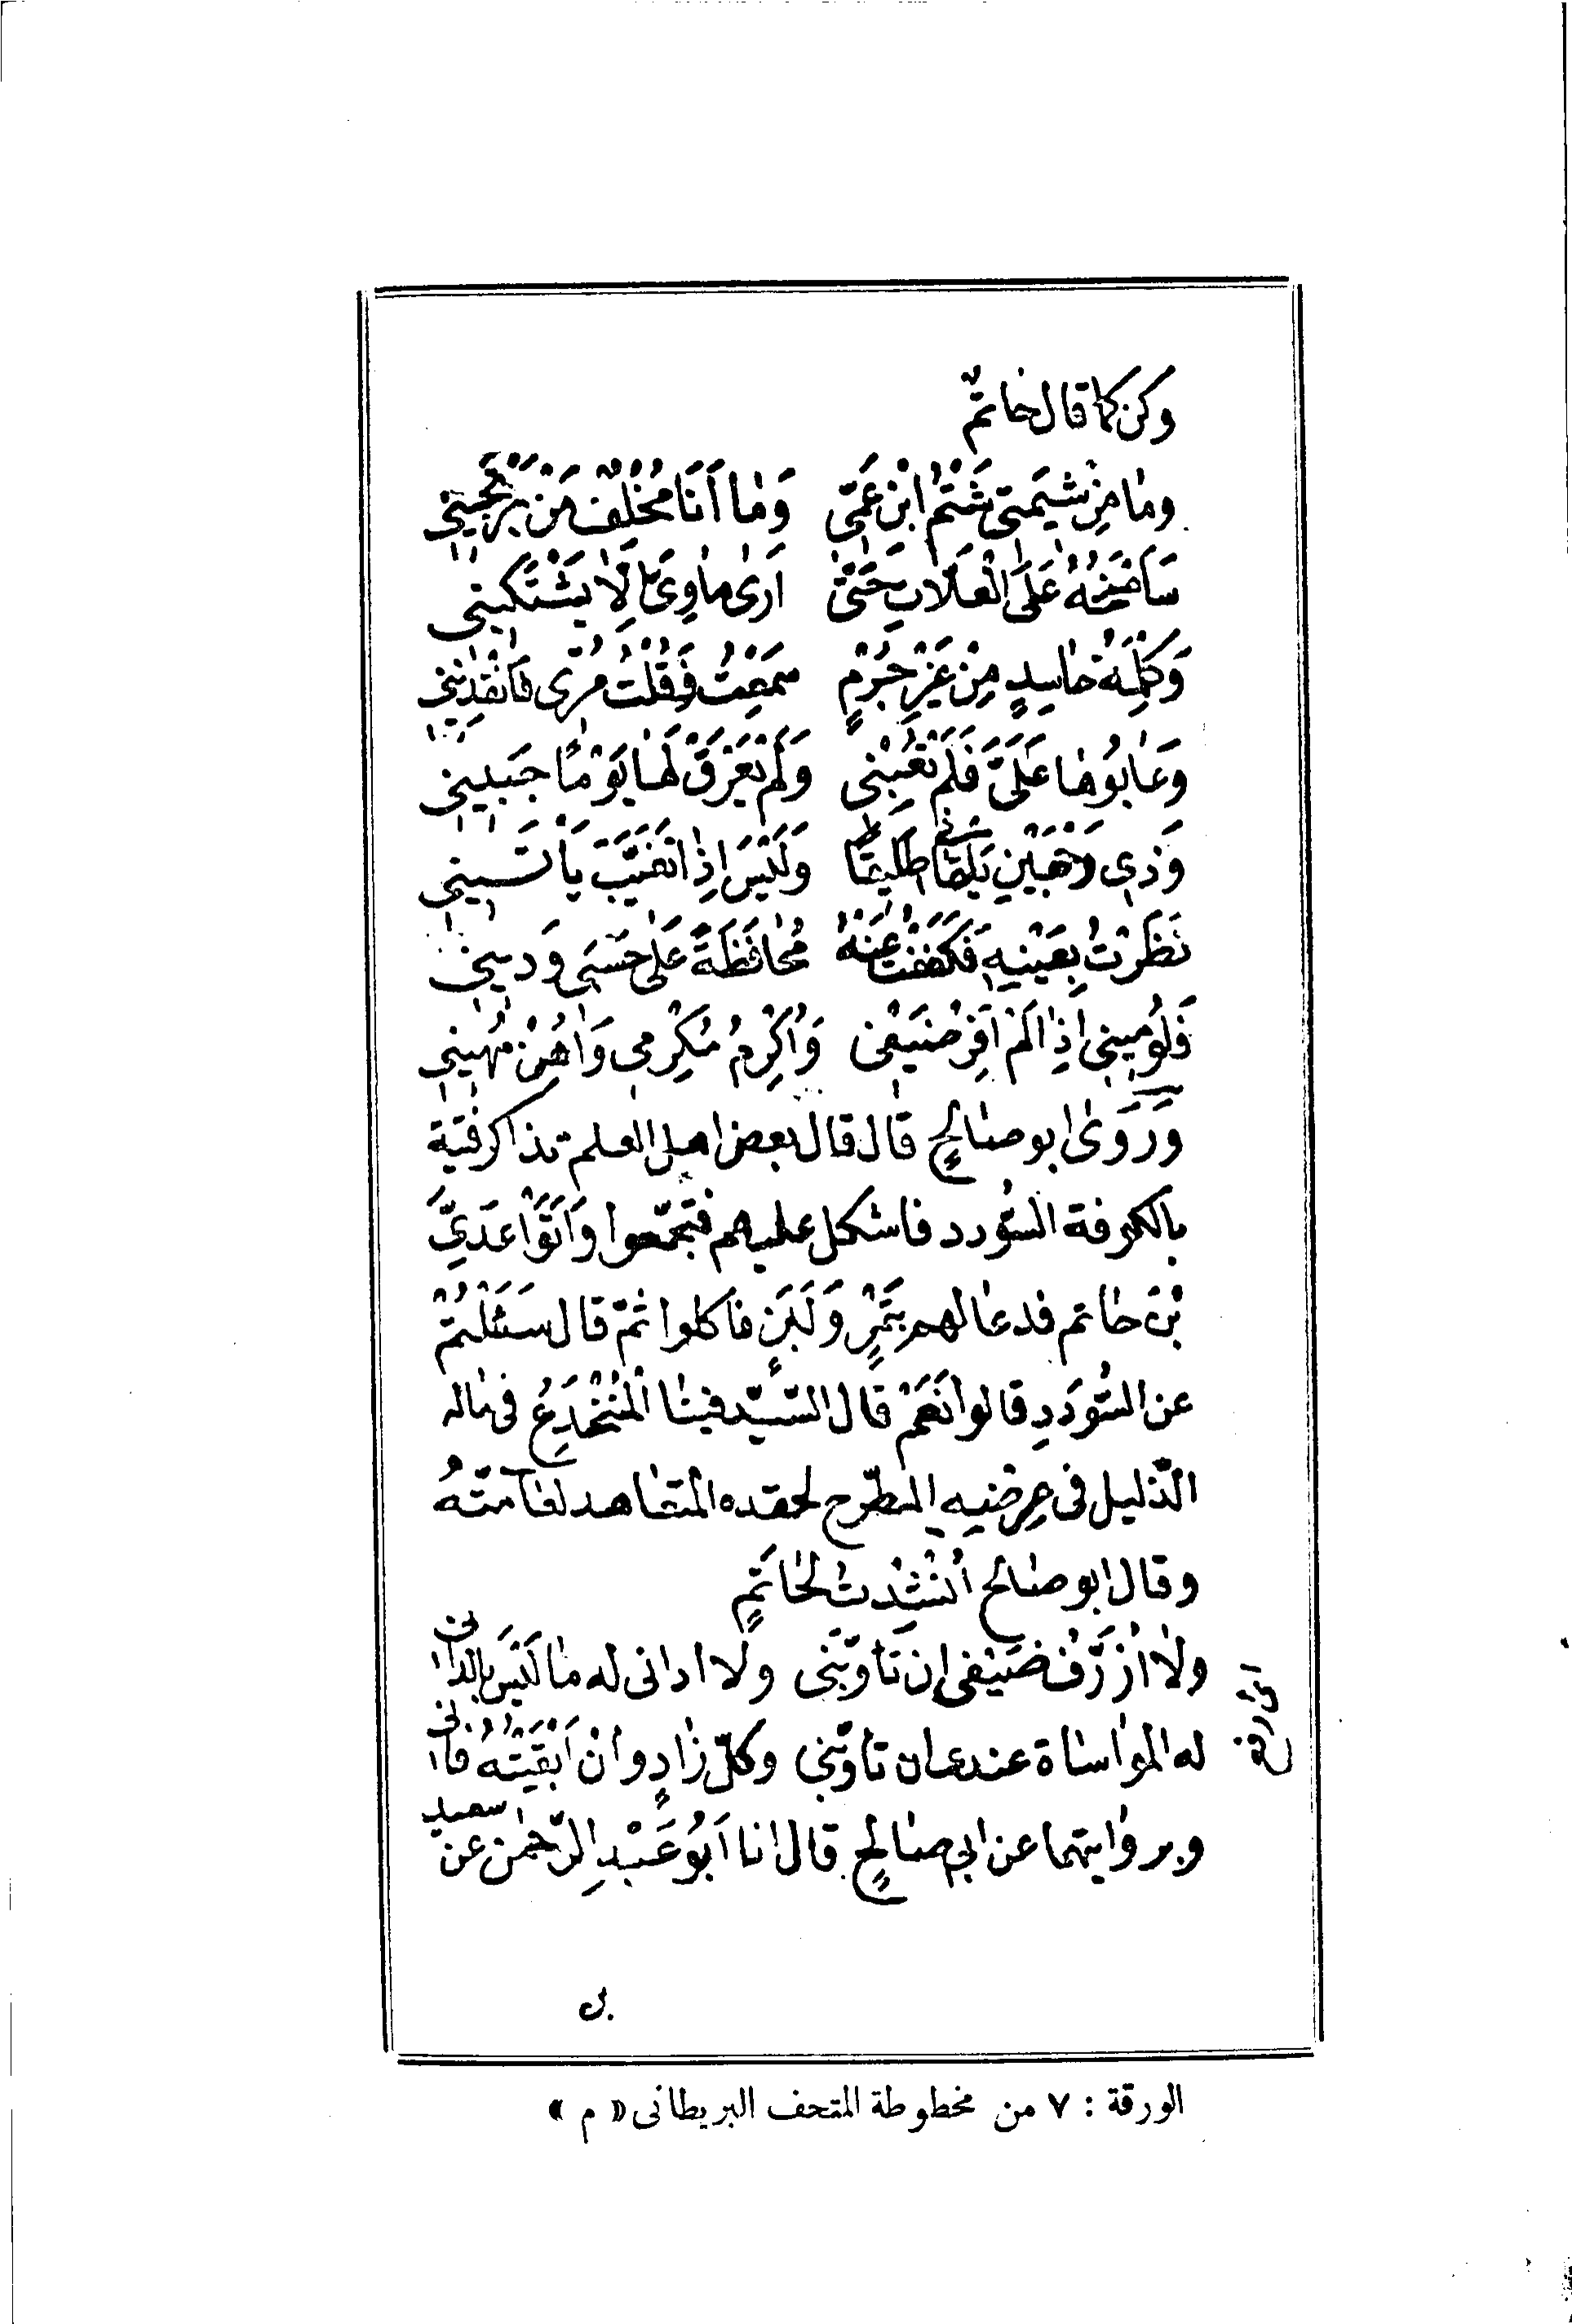 وكن كما قال حاتمٌ
وما مِنْ شيمَتى شَتْمُ ابْنِ عَمّى وَما اَنَا مُخْلِفٌ مَنْ يَرْتَجيني
سَاَمْنَحُهُ عَلَى الْعَلّاتِ حَتّى اَرى ماوِىَّ اَلّا يَشْتَكيني
وَكَلِمَةُ حاسِدٍ مِنْ غَيْرِ جُرْمٍ سَمِعْتُ فَقُلْتُ مُرّى فَانْقُذيني
وَعابُوها عَلَىَّ فَلَمْ تَعِبْنى وَلَمْ يَعْرَقْ لَها يَوْمًا جَبيني
وَذى وَجْهَيْنِ يَلْقانى طَليقًا وَلَيْسَ اِذا تَغَيَّبَ يَأْتَسيني
نَظَرْتُ بِعَيْنِهِ فَكَفَفْتُ عَنْهُ مُحافَظَةً عَلى حَسَبى وَديني
فَلُوميني اِذا لَمْ اَقْرِ ضَيْفى وَاُكْرِمُ مُكْرِمى وَاُهِنْ مُهيني
وَرَوَى ابو صالحٍ قال قال بعض اهل العلم تذاكر فتية
بالكوفة السُّودد فاشكل عليهم فتجمّعوا وَاَتَوْا عَدِىَّ
بْنَ حاتم فدعا لهم بِتَمْرٍ وَلَبَنٍ فاكلوا ثمّ قال سَئَلْتُمْ
عن السُّودَدِ قالوا نَعَمْ قال السّيّد فينا الْمُنْخَدِعُ فى ماله
الذّليل فى عِرْضِهِ المطّرح لحقده المتعاهد لعامّتهُ
وقال ابو صالح اُنْشِدْتُ لِحاتَمٍ
ولا اُزَرِّفُ ضَيْفى اِن تَاَوَّبَنى ولا ادانى له ما لَيْسَ بالدّانى
له المواساة عندى ان تاوّبنى وكلّ زادٍ وان اَبْقَيْتُهُ فانى
وبروايتهما عن ابى صالحٍ قال انا اَبُو عَبْدِ الرّحمن عن سعيد
بن
الورقة : ٧ من مخطوطة المتحف البريطانى « م »